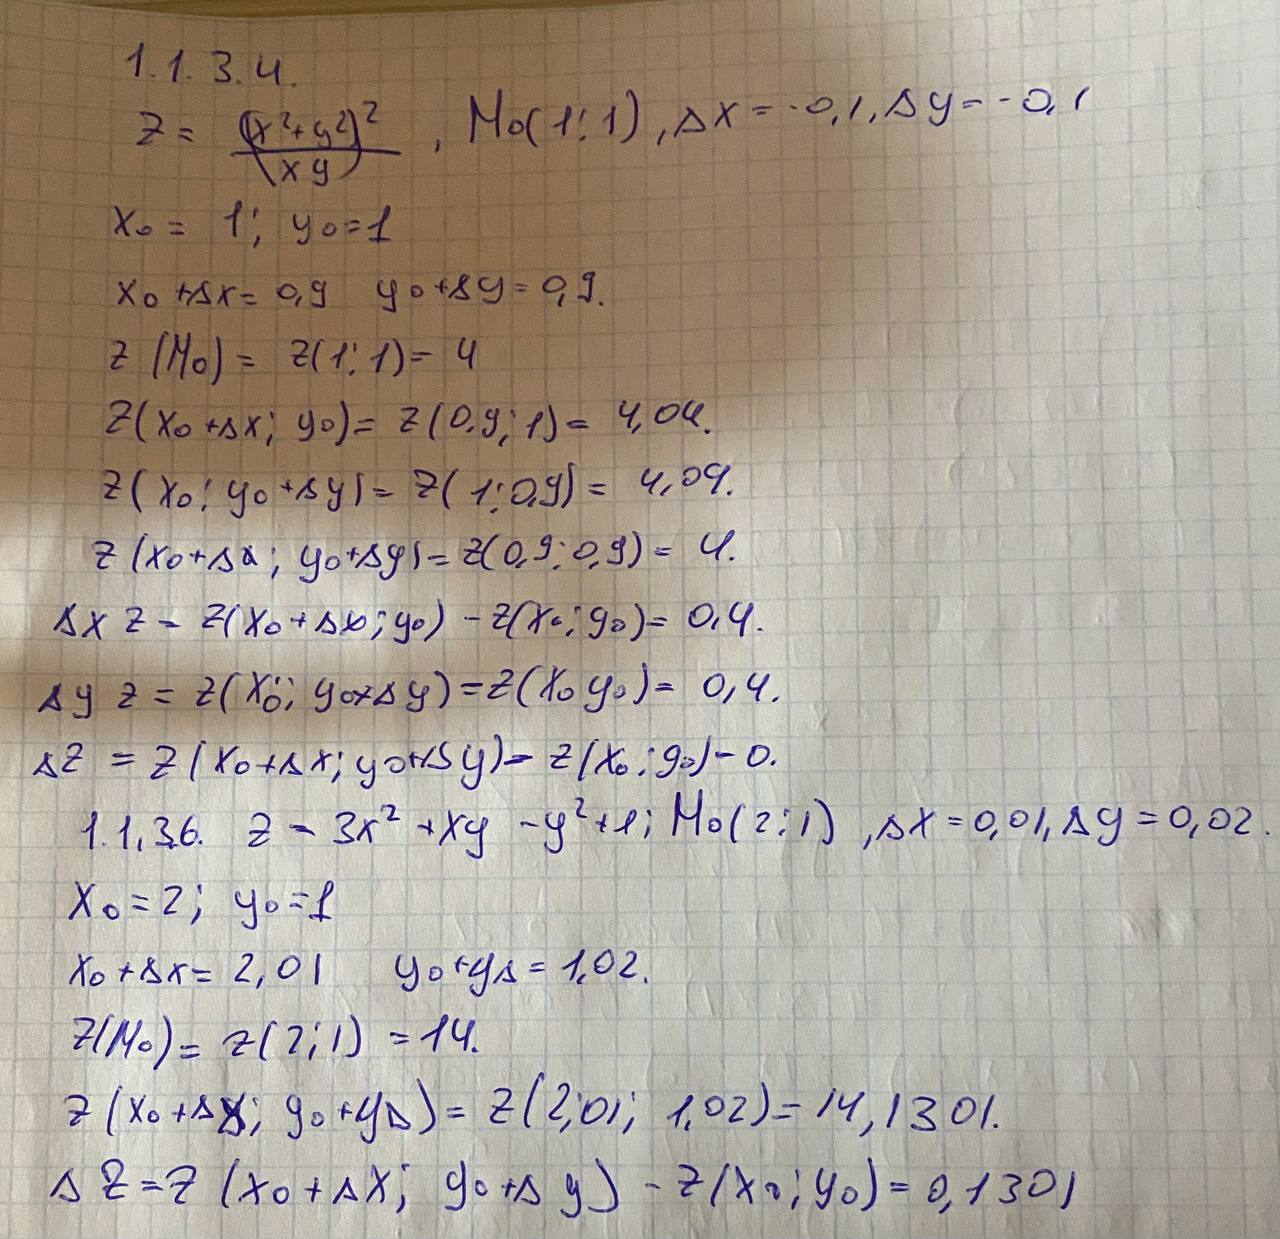 1.1.3.4.
z = (x²+y²)² / (xy) , M₀(1;1), Δx = -0,1, Δy = -0,1
x₀ = 1; y₀=1
x₀+Δx= 0,9 y₀+Δy= 0,9.
z (M₀) = z(1;1)= 4
z(x₀+Δx; y₀)= z(0,9;1)= 4,04.
z(x₀; y₀+Δy)= z(1;0,9)= 4,04.
z(x₀+Δx; y₀+Δy)= z(0,9;0,9)= 4.
Δx z - z(x₀+Δx; y₀) - z(x₀; y₀)= 0,4.
Δy z = z(x₀; y₀+Δy)=z(x₀ y₀)= 0,4.
Δz = z(x₀+Δx; y₀+Δy)- z(x₀; y₀)- 0.
1.1.3.6. z - 3x² +xy -y²+1; M₀(2;1) , Δx=0,01, Δy=0,02.
x₀=2; y₀=1
x₀+Δx= 2,01 y₀+yΔ=1,02.
z(M₀)= z(2;1) =14.
z(x₀+Δx; y₀+yΔ)= z(2,01; 1,02)=14,1301.
Δz=z (x₀+Δx; y₀+Δy) - z(x₀; y₀)= 0,1301